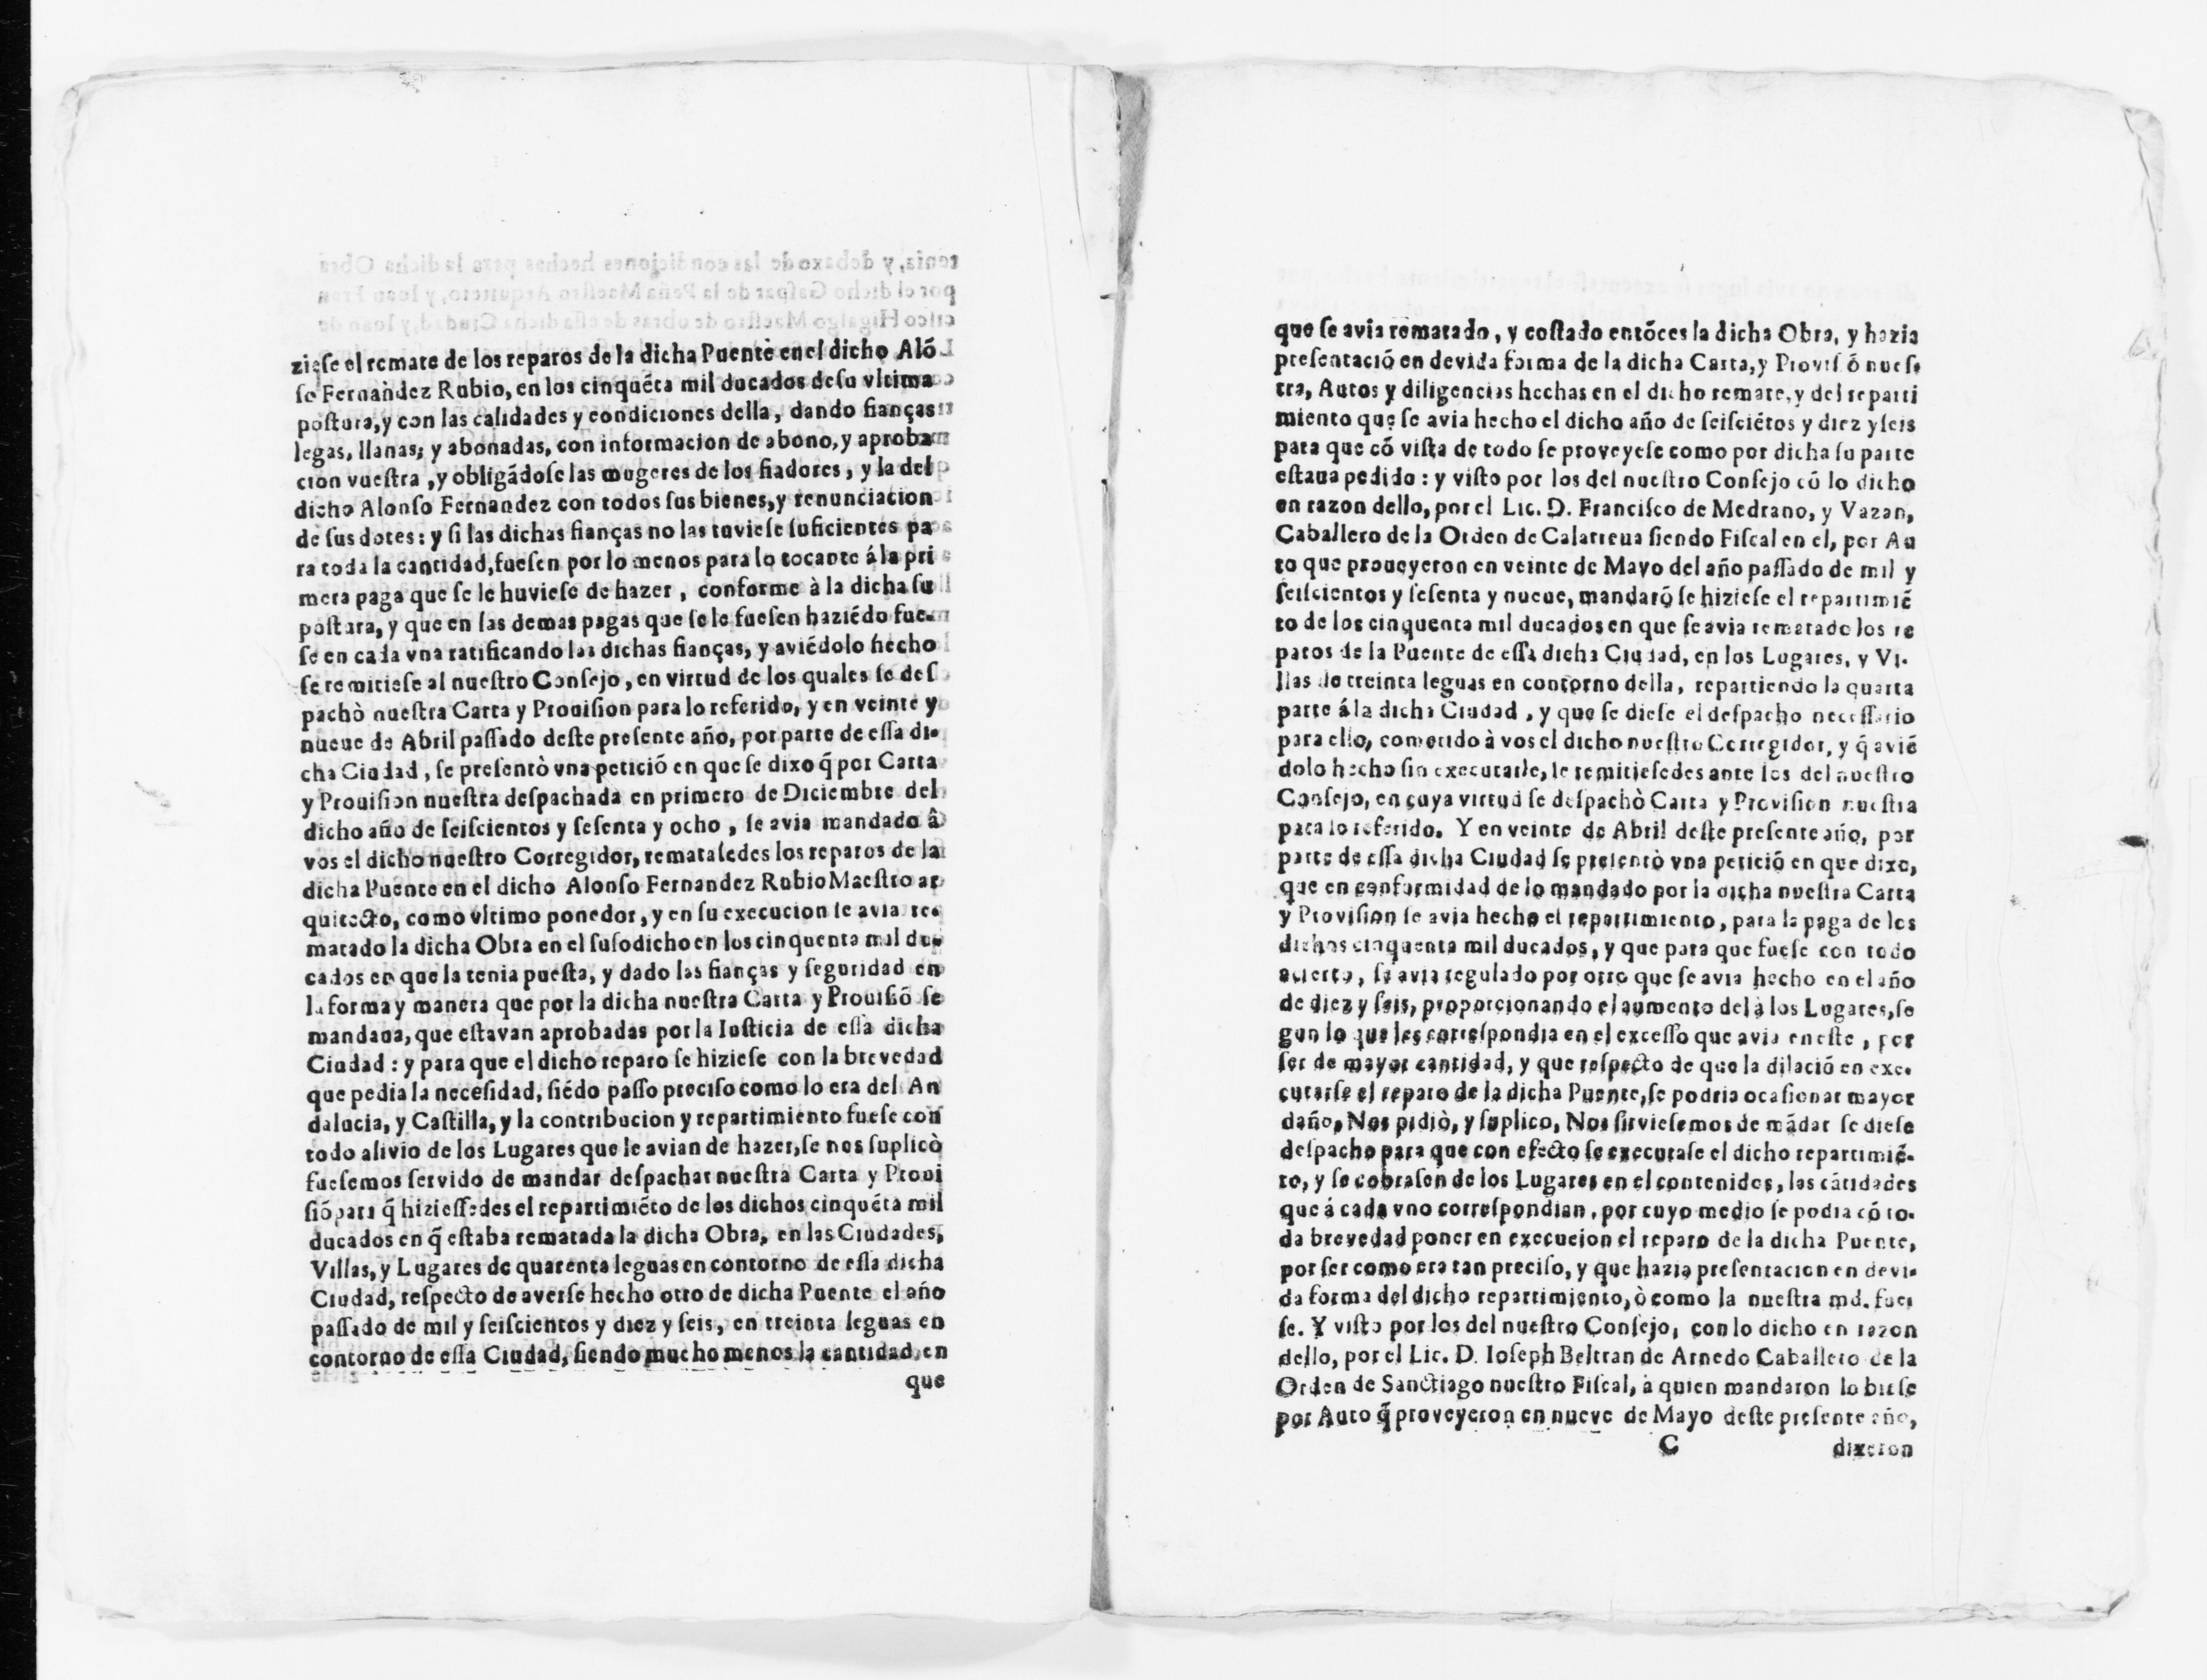 zieſe el remate de los reparos de la dicha Puente en el dicho Aló
ſo Fernàndez Rubio, en los cinquéta mil ducados deſu vltima
poſtura, y con las calidades y condiciones della, dando fianças
legas, llanas, y abonadas, con informacion de abono, y aproba
cion vueſtra, y obligádoſe las mugeres de los fiadores, y la del
dicho Alonſo Fernandez con todos ſus bienes, y renunciacion
de ſus dotes: y ſi las dichas fianças no las tuvieſe ſuficientes pa
ra toda la cantidad, fueſen por lo menos para lo tocante á la pri
mera paga que ſe le huvieſe de hazer, conforme à la dicha ſu
poſtura, y que en las demas pagas que ſe le fueſen haziédo fue-
ſe en cada vna ratificando las dichas fianças, y aviédolo hecho
ſe remitieſe al nueſtro Conſejo, en virtud de los quales ſe deſ
pachò nueſtra Carta y Prouiſion para lo referido, y en veinte y
nueue de Abril paſſado deſte preſente año, por parte de eſſa di-
cha Ciudad, ſe preſentò vna petició en que ſe dixo q̃ por Carta
y Prouiſion nueſtra deſpachada en primero de Diciembre del
dicho año de ſeiſcientos y ſeſenta y ocho, ſe avia mandado â
vos el dicho nueſtro Corregidor, remataſedes los reparos de la
dicha Puente en el dicho Alonſo Fernandez Rubio Maeſtro ar
quitecto, como vltimo ponedor, y en ſu execucion ſe avia re-
matado la dicha Obra en el ſuſodicho en los cinquenta mil du-
cados en que la tenia pueſta, y dado las fianças y ſeguridad en
la forma y manera que por la dicha nueſtra Carta y Prouiſió ſe
mandaua, que eſtavan aprobadas por la Iuſticia de eſſa dicha
Ciudad: y para que el dicho reparo ſe hizieſe con la brevedad
que pedia la neceſidad, ſiédo paſſo preciſo como lo era del An
dalucia, y Caſtilla, y la contribucion y repartimiento fueſe con
todo alivio de los Lugares que le avian de hazer, ſe nos ſuplicò
fueſemos ſervido de mandar deſpachar nueſtra Carta y Proui
ſió para q̃ hizieſſedes el repartimiéto de los dichos cinquéta mil
ducados en q̃ eſtaba rematada la dicha Obra, en las Ciudades,
Villas, y Lugares de quarenta leguas en contorno de eſſa dicha
Ciudad, reſpecto de averſe hecho otro de dicha Puente el año
paſſado de mil y ſeiſcientos y diez y ſeis, en treinta leguas en
contorno de eſſa Ciudad, ſiendo mucho menos la cantidad, en
que
que ſe avia rematado, y coſtado entõces la dicha Obra, y hazia
preſentació en devida forma de la dicha Carta, y Proviſió nueſ-
tra, Autos y diligencias hechas en el dicho remate, y del reparti
miento que ſe avia hecho el dicho año de ſeiſciétos y diez y ſeis
para que có viſta de todo ſe proveyeſe como por dicha ſu parte
eſtaua pedido: y viſto por los del nueſtro Conſejo có lo dicho
en razon dello, por el Lic. D. Franciſco de Medrano, y Vazan,
Caballero de la Orden de Calatreua ſiendo Fiſcal en el, por Au
to que proueyeron en veinte de Mayo del año paſſado de mil y
ſeiſcientos y ſeſenta y nueue, mandaró ſe hizieſe el repartimié
to de los cinquenta mil ducados en que ſe avia rematado los re
paros de la Puente de eſſa dicha Ciudad, en los Lugares, y Vi-
llas de treinta leguas en contorno della, repartiendo la quarta
parte á la dicha Ciudad, y que ſe dieſe el deſpacho neceſſario
para ello, cometido à vos el dicho nueſtro Corregidor, y q̃ avié
dolo hecho ſin executarle, le remitieſedes ante los del nueſtro
Conſejo, en cuya virtud ſe deſpachò Carta y Proviſion nueſtra
para lo referido. Y en veinte de Abril deſte preſente año, por
parte de eſſa dicha Ciudad ſe preſentò vna petició en que dixo,
que en conformidad de lo mandado por la dicha nueſtra Carta
y Proviſion ſe avia hecho el repartimiento, para la paga de los
dichos cinquenta mil ducados, y que para que fueſe con todo
acierto, ſe avia regulado por otro que ſe avia hecho en el año
de diez y ſeis, proporcionando el aumento del à los Lugares, ſe
gun lo que les correſpondia en el exceſſo que avia en eſte, por
ſer de mayor cantidad, y que reſpecto de que la dilació en exe-
cutarſe el reparo de la dicha Puente, ſe podria ocaſionar mayor
daño, Nos pidiò, y ſuplico, Nos ſirvieſemos de mãdar ſe dieſe
deſpacho para que con efecto ſe executaſe el dicho repartimié-
to, y ſe cobraſen de los Lugares en el contenidos, las cátidades
que á cada vno correſpondian, por cuyo medio ſe podia có to-
da brevedad poner en execucion el reparo de la dicha Puente,
por ſer como era tan preciſo, y que hazia preſentacion en devi-
da forma del dicho repartimiento, ò como la nueſtra md. fue
ſe. Y viſto por los del nueſtro Conſejo, con lo dicho en razon
dello, por el Lic. D. Ioſeph Beltran de Arnedo Caballero de la
Orden de Sanctiago nueſtro Fiſcal, à quien mandaron lo vieſe
por Auto q̃ proveyeron en nueve de Mayo deſte preſente año,
C dixeron